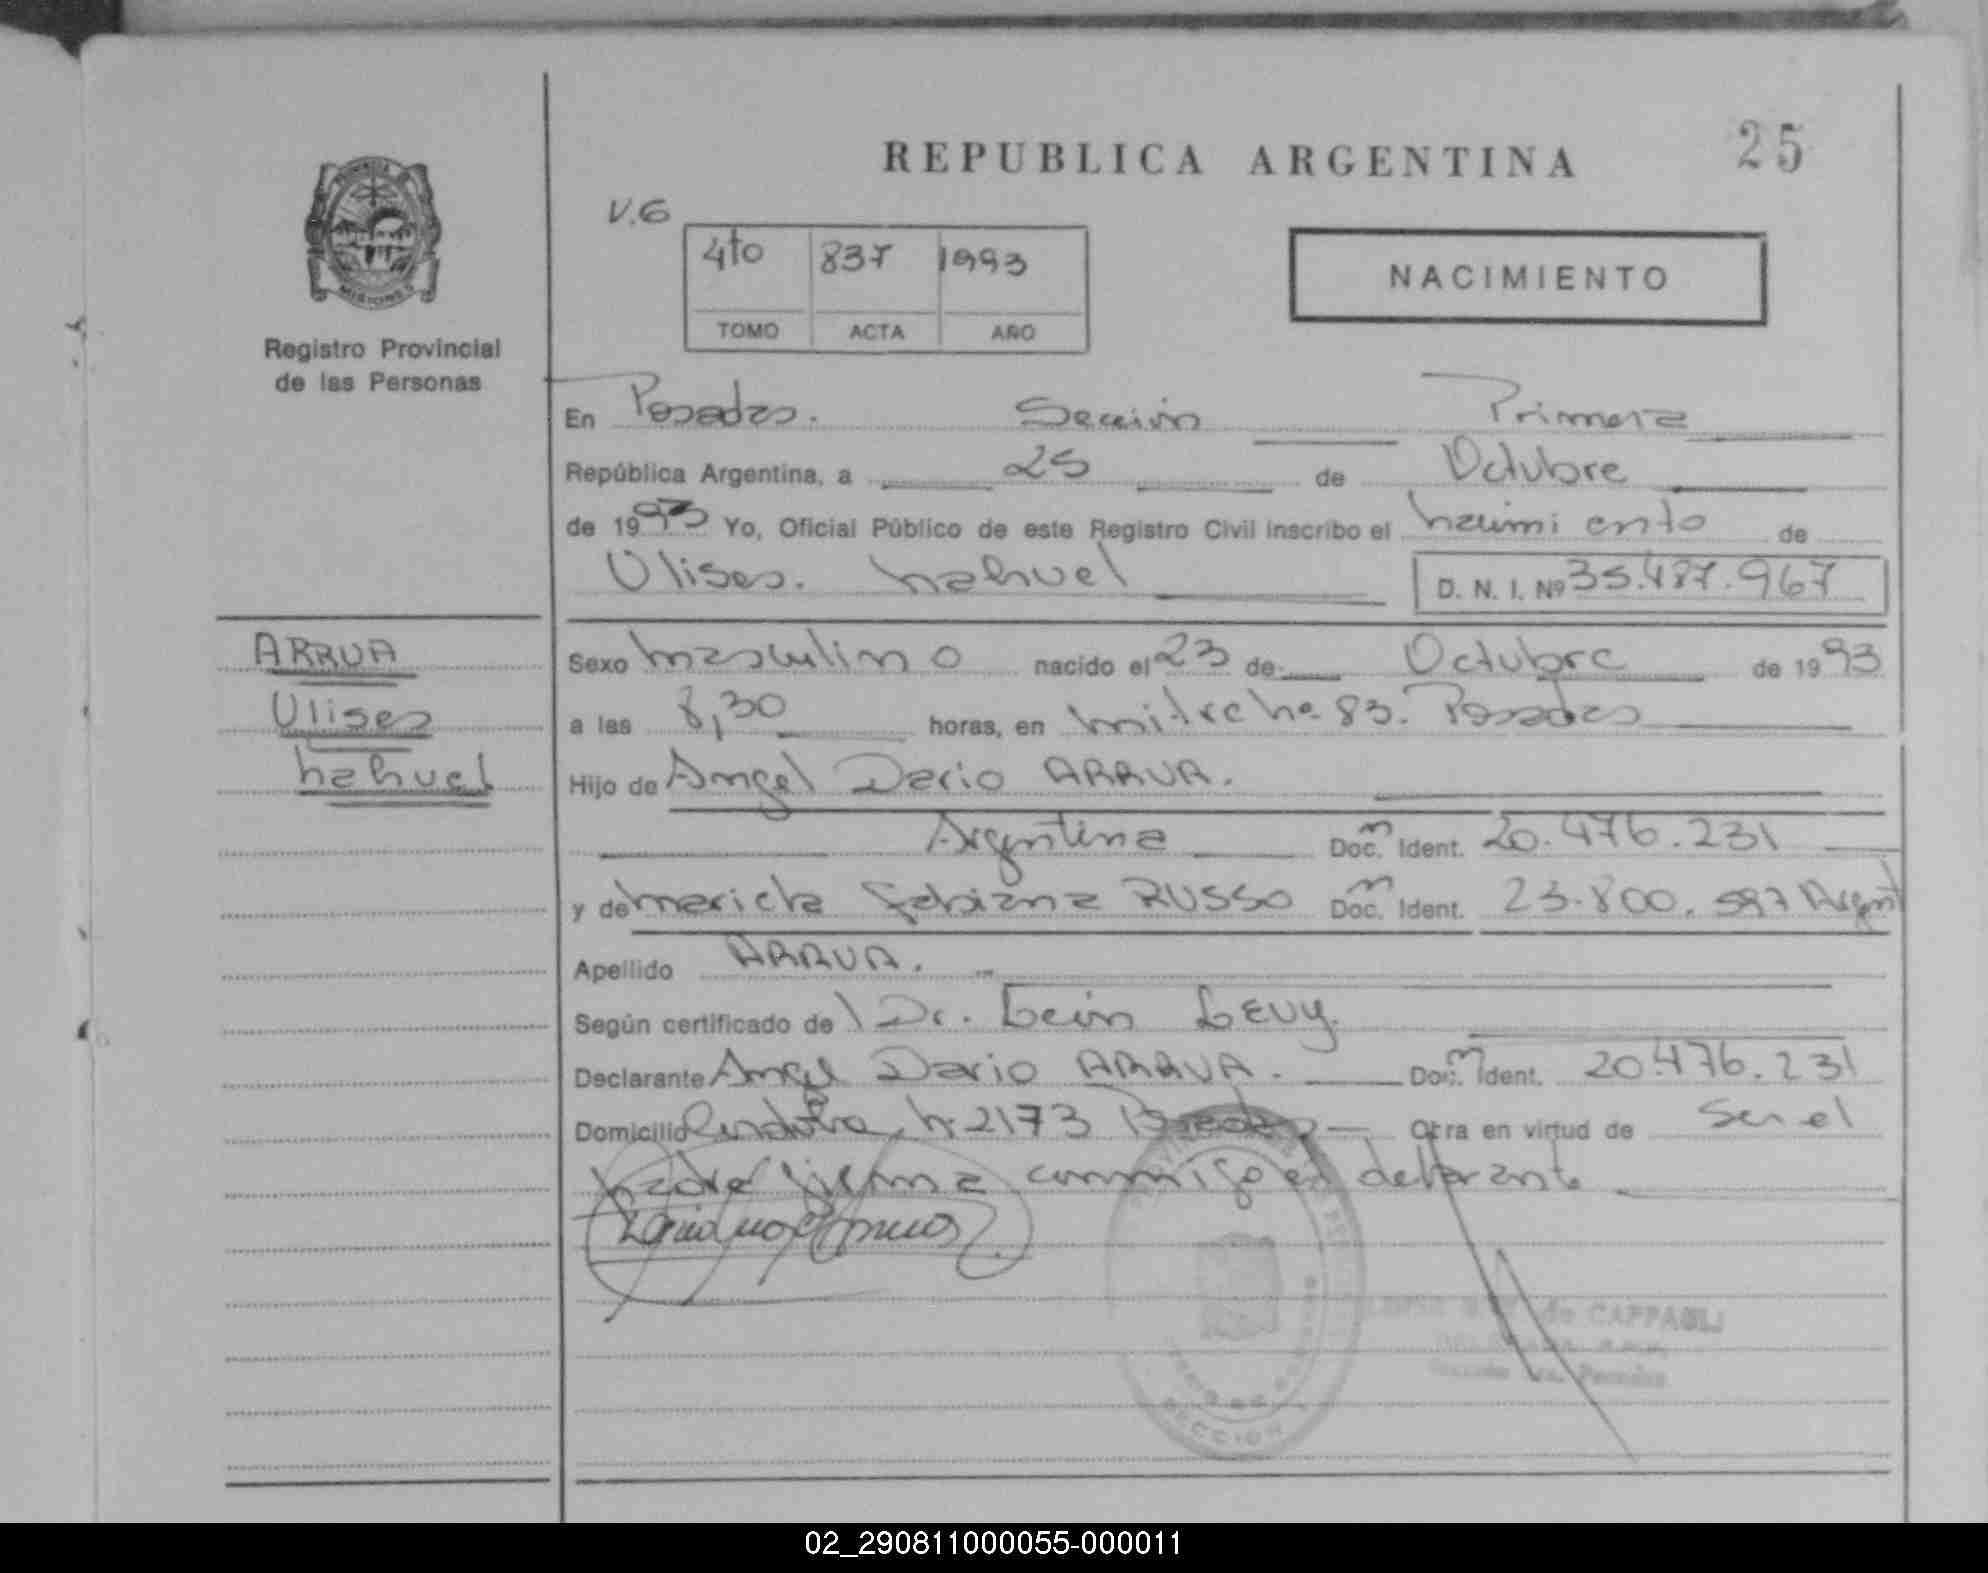 REPUBLICA ARGENTINA 25
V.6
4to 837 1993
TOMO ACTA AÑO
NACIMIENTO
MISIONES
Registro Provincial
de las Personas
En Posadas. Sección Primera
República Argentina, a 25 de Octubre
de 1993 Yo, Oficial Público de este Registro Civil inscribo el nacimiento de
Ulises. Nahuel D. N. I. Nº 35.487.967
ARRUA
Ulises
Nahuel
Sexo Masculino nacido el 23 de Octubre de 1993
a las 8,30 horas, en Mitre Nº 83. Posadas
Hijo de Angel Dario ARRUA.
Argentina Doc. Ident. 20.476.231
y de Mariela Fabiana RUSSO Doc. Ident. 23.800.597 Argent
Apellido ARRUA.
Según certificado de Dr. León LEVY.
Declarante Angel Dario ARRUA. Doc. Ident. 20.476.231
Domicilio Nº 2173 Posadas Otra en virtud de Ser el
Padre firma conmigo el
de CAPPAGLI
SECCION
02_290811000055-000011